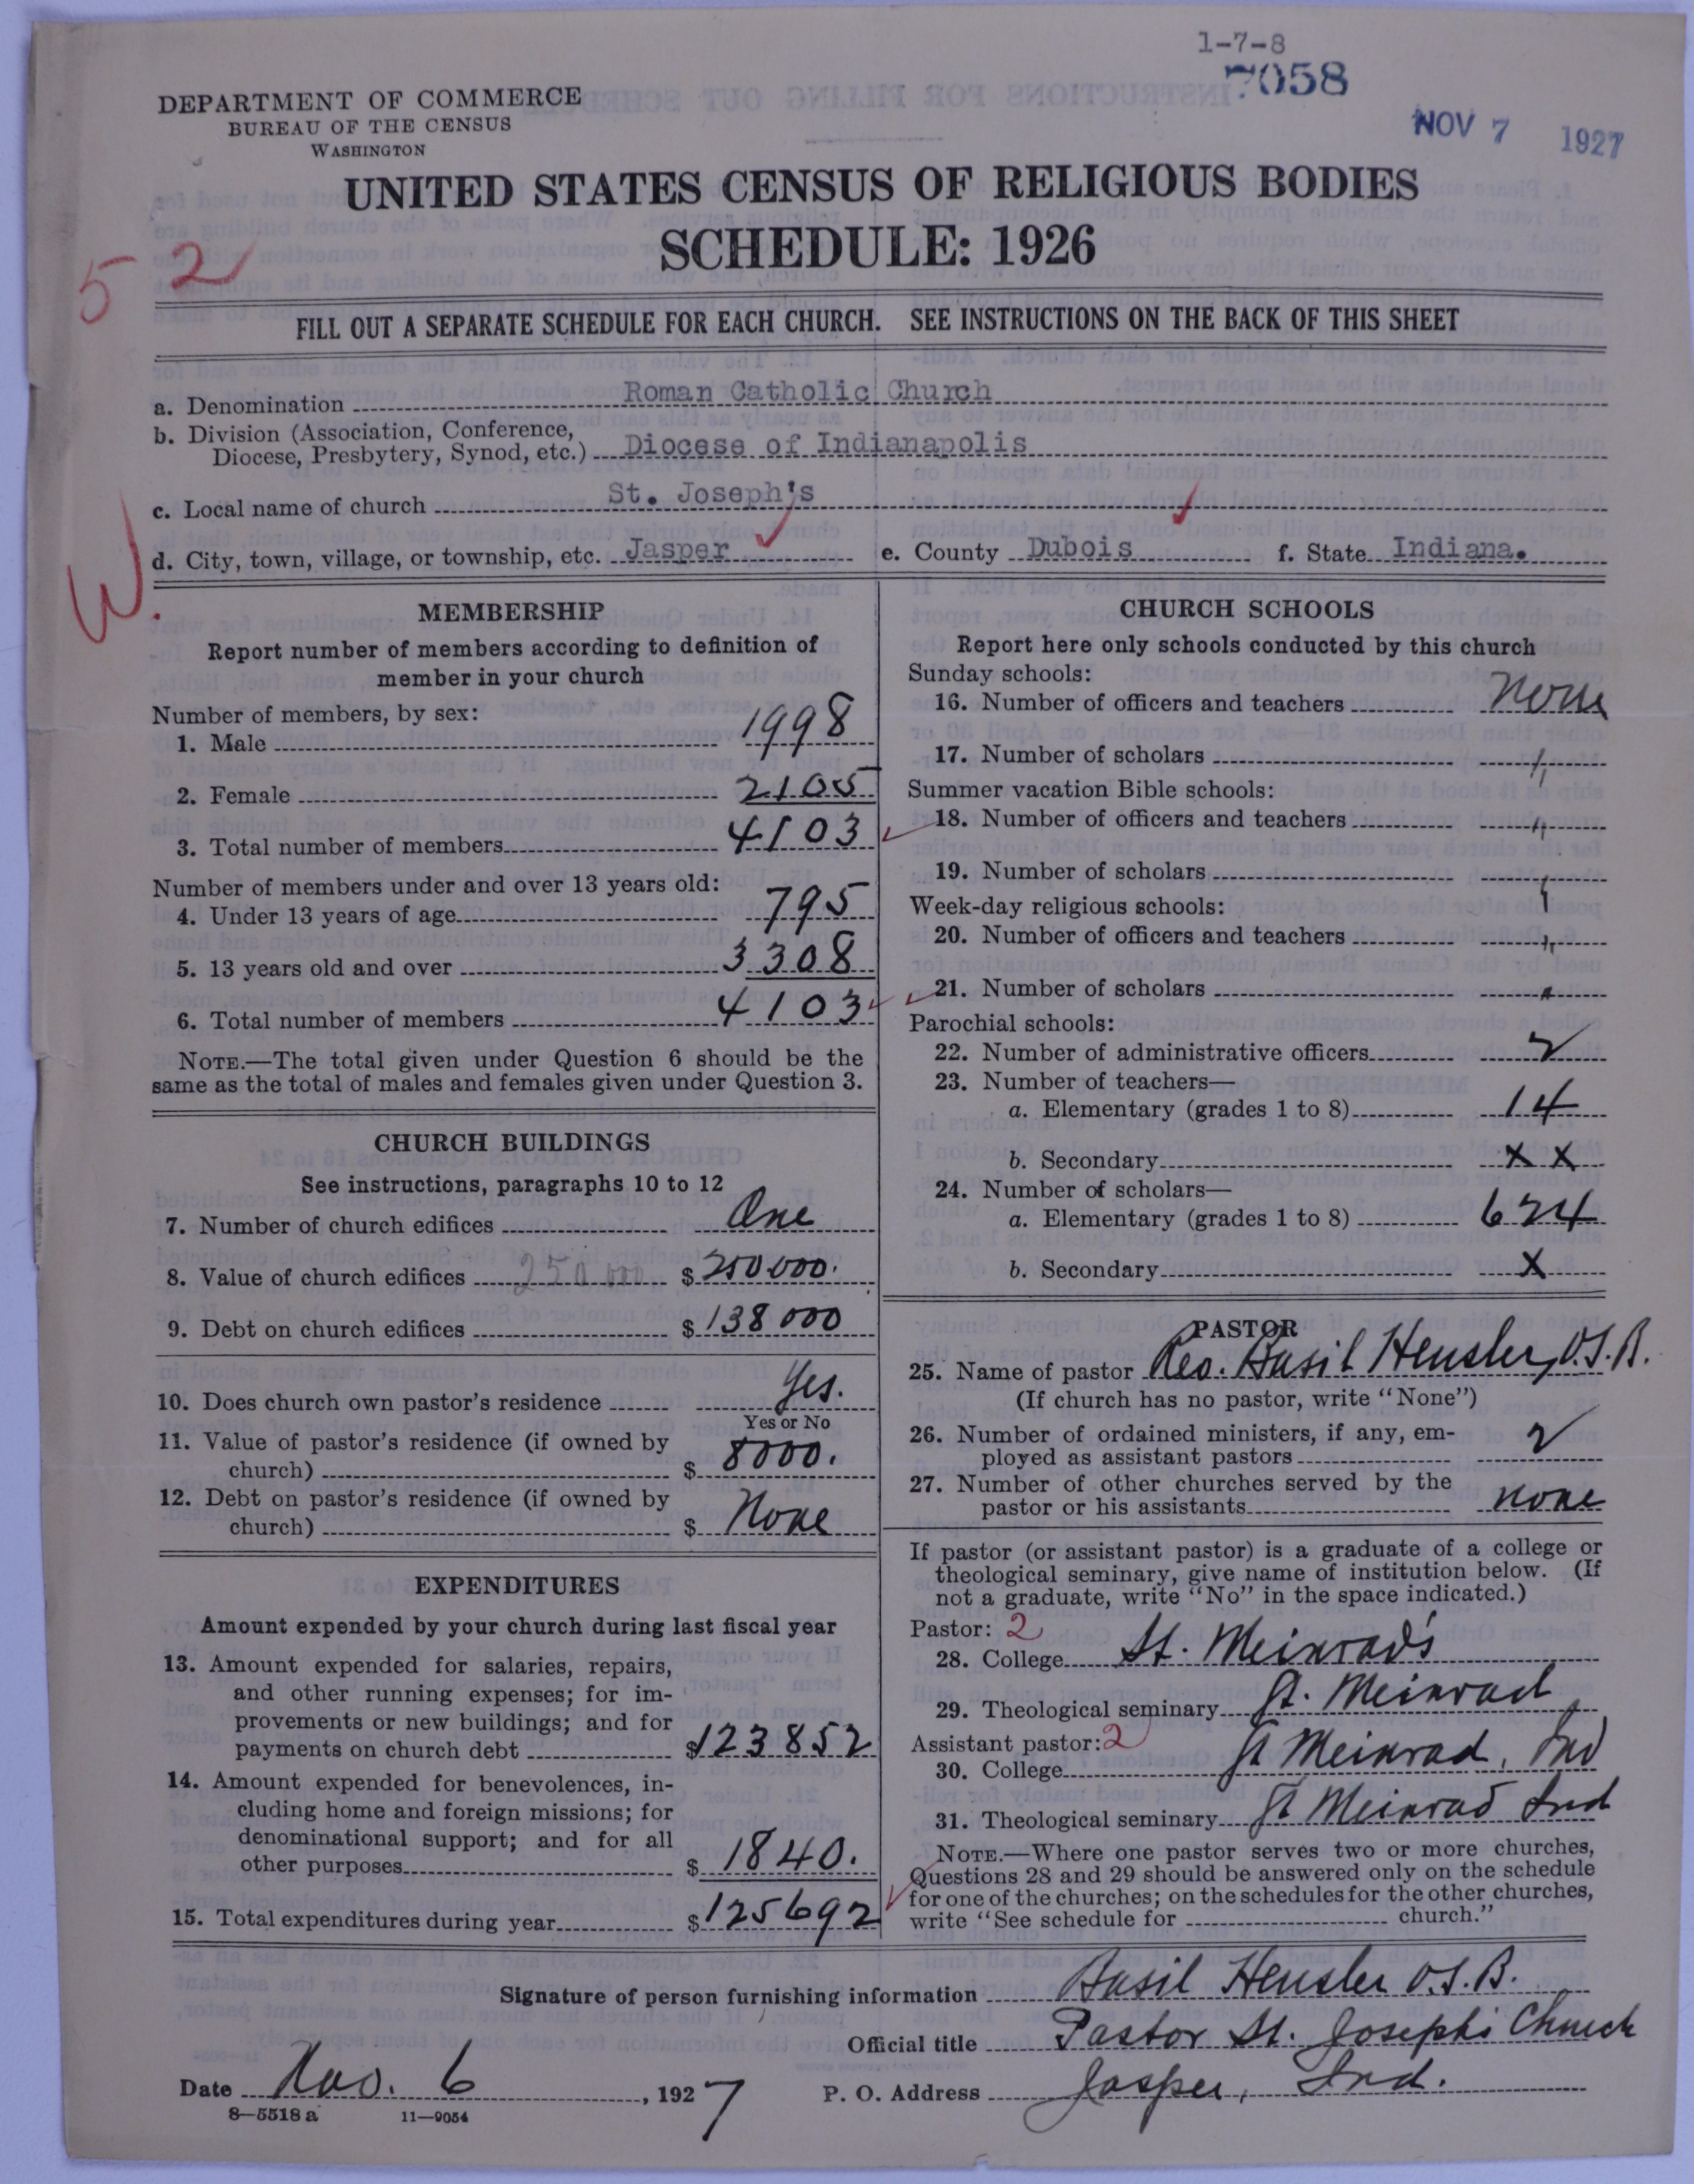 1-7-8
7058
DEPARTMENT OF COMMERCE
BUREAU OF THE CENSUS
WASHINGTON
NOV 7 1927
UNITED STATES CENSUS OF RELIGIOUS BODIES
SCHEDULE: 1926
52
FILL OUT A SEPARATE SCHEDULE FOR EACH CHURCH. SEE INSTRUCTIONS ON THE BACK OF THIS SHEET
a. Denomination Roman Catholic Church
b. Division (Association, Conference,
Diocese, Presbytery, Synod, etc.) Diocese of Indianapolis
c. Local name of church St. Joseph's
W.
d. City, town, village, or township, etc. Jasper e. County Dubois f. State Indiana.
MEMBERSHIP
Report number of members according to definition of
member in your church
Number of members, by sex:
1. Male 1998
2. Female 2105
3. Total number of members 4103
Number of members under and over 13 years old:
4. Under 13 years of age 795
5. 13 years old and over 3308
6. Total number of members 4103
NOTE.—The total given under Question 6 should be the
same as the total of males and females given under Question 3.
CHURCH BUILDINGS
See instructions, paragraphs 10 to 12
7. Number of church edifices One
8. Value of church edifices 250 000 $ 250 000.
9. Debt on church edifices $ 138 000
10. Does church own pastor's residence Yes.
Yes or No
11. Value of pastor's residence (if owned by
church) $ 8000.
12. Debt on pastor's residence (if owned by
church) $ None
EXPENDITURES
Amount expended by your church during last fiscal year
13. Amount expended for salaries, repairs,
and other running expenses; for im-
provements or new buildings; and for
payments on church debt $ 123 852
14. Amount expended for benevolences, in-
cluding home and foreign missions; for
denominational support; and for all
other purposes $ 1840.
15. Total expenditures during year $ 125692
CHURCH SCHOOLS
Report here only schools conducted by this church
Sunday schools:
16. Number of officers and teachers None
17. Number of scholars "
Summer vacation Bible schools:
18. Number of officers and teachers "
19. Number of scholars "
Week-day religious schools:
20. Number of officers and teachers "
21. Number of scholars "
Parochial schools:
22. Number of administrative officers 2
23. Number of teachers—
a. Elementary (grades 1 to 8) 14
b. Secondary x x
24. Number of scholars—
a. Elementary (grades 1 to 8) 624
b. Secondary x
PASTOR
25. Name of pastor Rev. Basil Heusler, O.S.B.
(If church has no pastor, write "None")
26. Number of ordained ministers, if any, em-
ployed as assistant pastors 2
27. Number of other churches served by the
pastor or his assistants none
If pastor (or assistant pastor) is a graduate of a college or
theological seminary, give name of institution below. (If
not a graduate, write "No" in the space indicated.)
Pastor: 2
28. College St. Meinrad's
29. Theological seminary St. Meinrad
Assistant pastor: 2
30. College St Meinrad, Ind
31. Theological seminary St Meinrad Ind
NOTE.—Where one pastor serves two or more churches,
Questions 28 and 29 should be answered only on the schedule
for one of the churches; on the schedules for the other churches,
write "See schedule for church."
Signature of person furnishing information Basil Heusler O.S.B.
Official title Pastor St. Josephs Church
Date Nov. 6, 1927 P. O. Address Jasper, Ind.
8—5518 a 11—9054